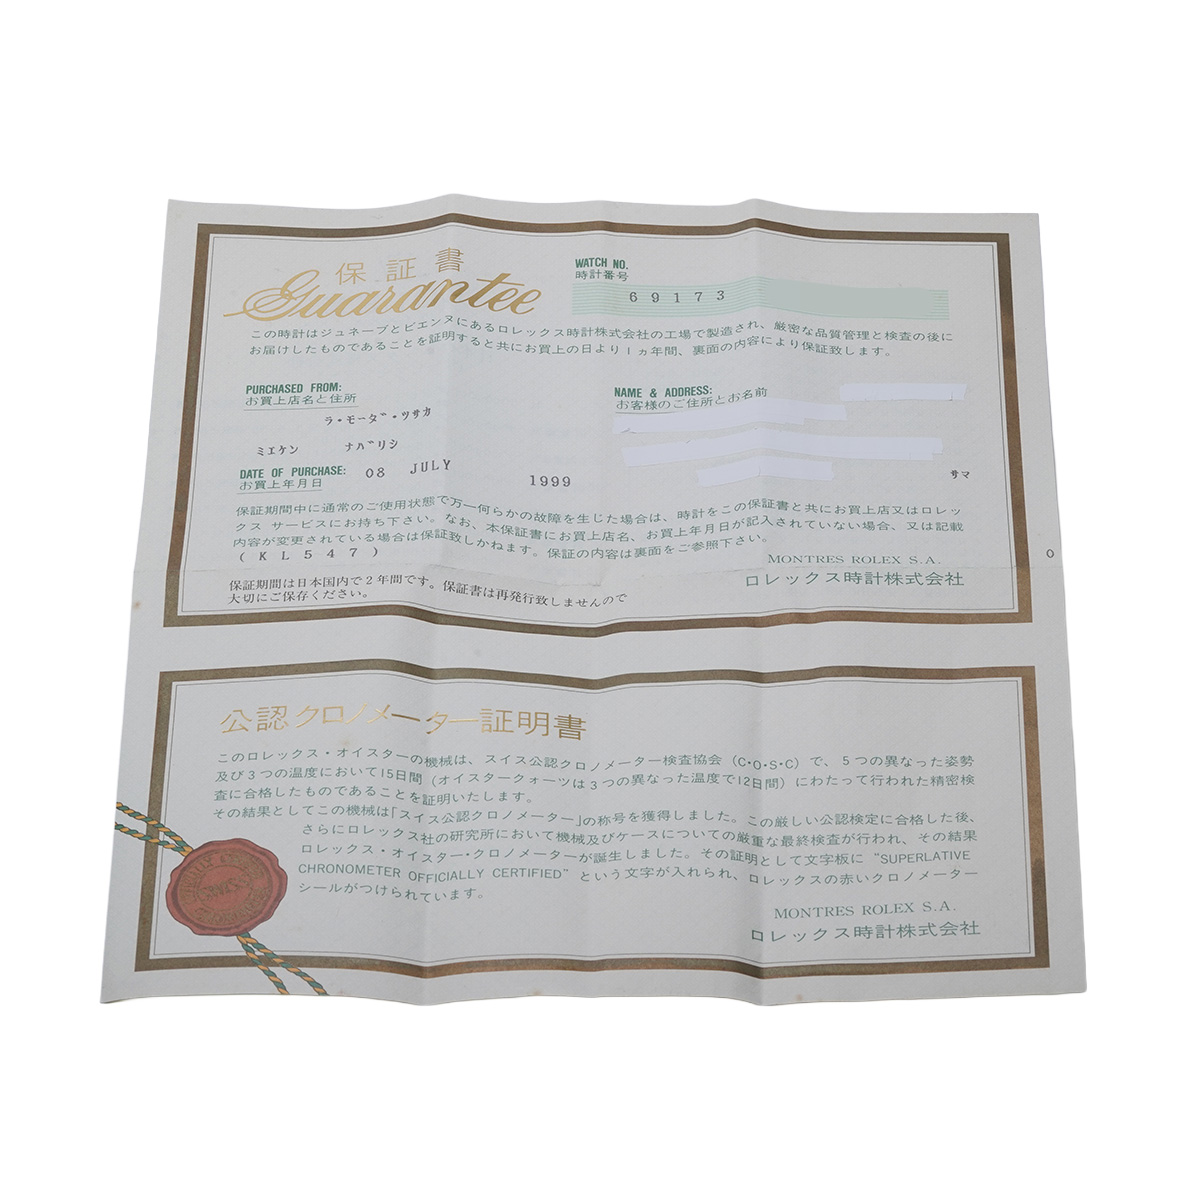 保証書
Guarantee
WATCH NO.
時計番号
69173
この時計はジュネーブとビエンヌにあるロレックス時計株式会社の工場で製造され、厳密な品質管理と検査の後に
お届けしたものであることを証明すると共にお買上の日より1ヵ年間、裏面の内容により保証致します。
PURCHASED FROM:
お買上店名と住所
ラ・モーダ・ツサカ
ミエケン ナバリシ
NAME & ADDRESS:
お客様のご住所とお名前
サマ
DATE OF PURCHASE: 08 JULY 1999
お買上年月日
保証期間中に通常のご使用状態で万一何らかの故障を生じた場合は、時計をこの保証書と共にお買上店又はロレッ
クス サービスにお持ち下さい。なお、本保証書にお買上店名、お買上年月日が記入されていない場合、又は記載
内容が変更されている場合は保証致しかねます。保証の内容は裏面をご参照下さい。
(KL547)
MONTRES ROLEX S.A.
ロレックス時計株式会社
O
保証期間は日本国内で2年間です。保証書は再発行致しませんので
大切にご保存ください。
公認クロノメーター証明書
このロレックス・オイスターの機械は、スイス公認クロノメーター検査協会(C・O・S・C)で、5つの異なった姿勢
及び3つの温度において15日間(オイスタークォーツは3つの異なった温度で12日間)にわたって行われた精密検
査に合格したものであることを証明いたします。
その結果としてこの機械は「スイス公認クロノメーター」の称号を獲得しました。この厳しい公認検定に合格した後、
さらにロレックス社の研究所において機械及びケースについての厳重な最終検査が行われ、その結果
ロレックス・オイスター・クロノメーターが誕生しました。その証明として文字板に"SUPERLATIVE
CHRONOMETER OFFICIALLY CERTIFIED"という文字が入れられ、ロレックスの赤いクロノメーター
シールがつけられています。
MONTRES ROLEX S.A.
ロレックス時計株式会社